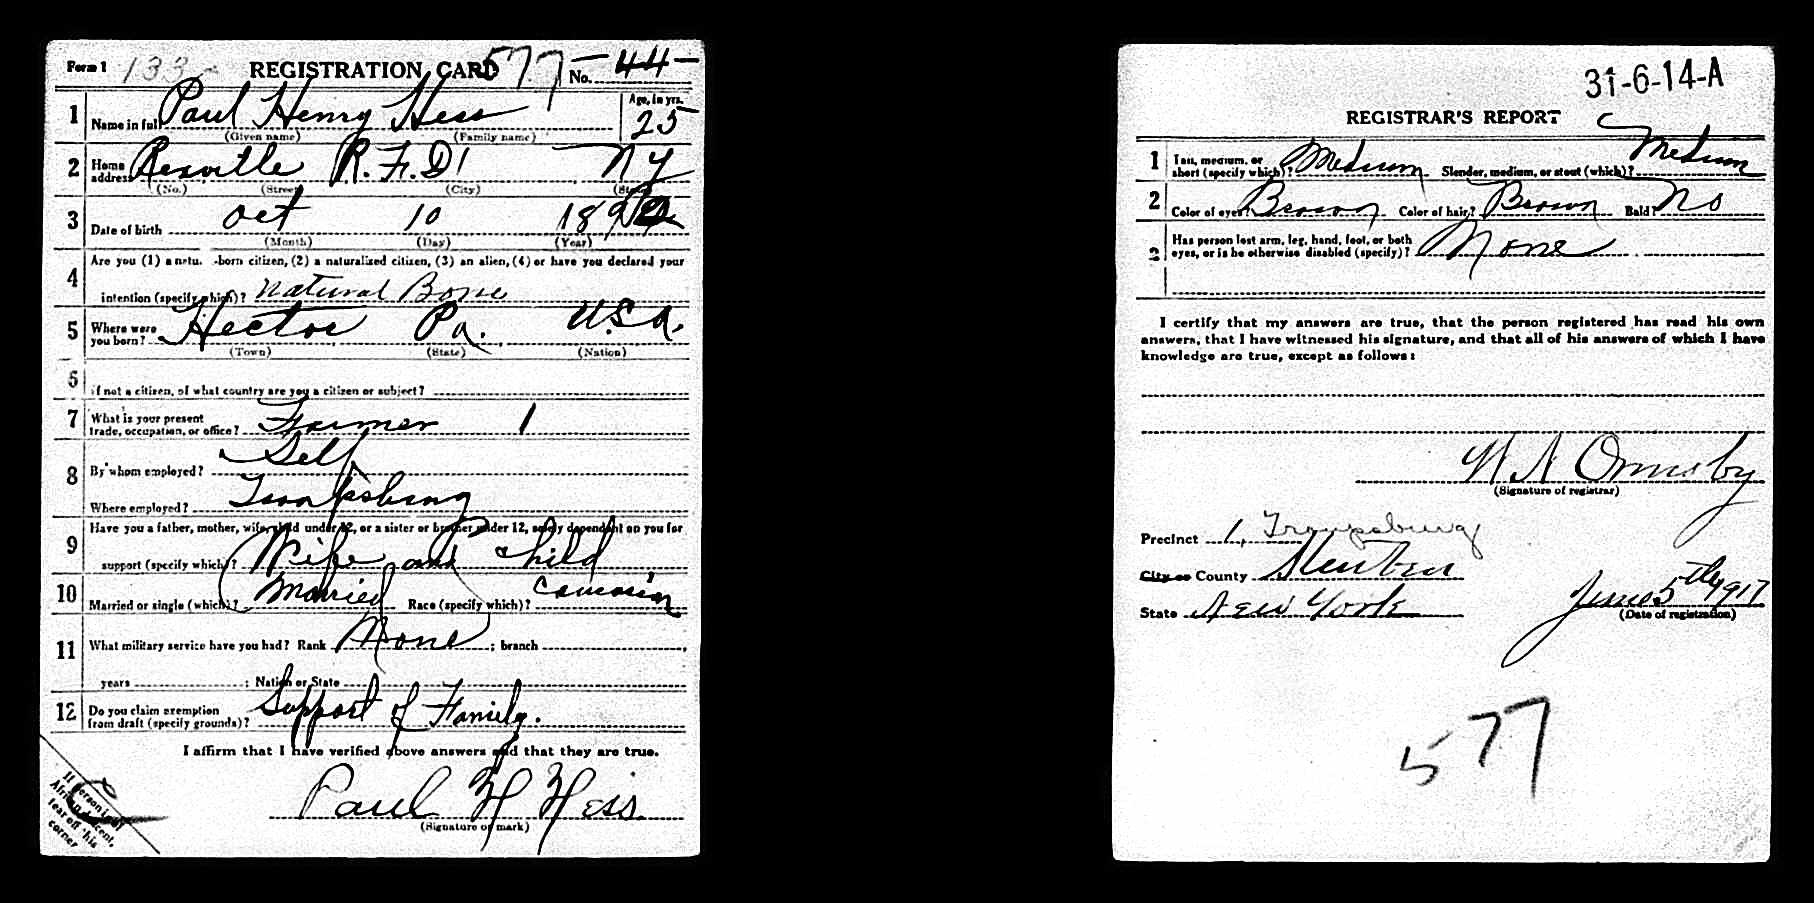 Form 1 133 REGISTRATION CARD 577 No. 44
1 Name in full Paul Henry Hess Age, in yrs. 25
(Given name) (Family name)
2 Home address Rexville R.F.D. 1 N Y
(No.) (Street) (City) (State)
3 Date of birth Oct 10 189
(Month) (Day) (Year)
4 Are you (1) a natu -born citizen, (2) a naturalized citizen, (3) an alien, (4) or have you declared your
intention (specify which)? Natural Bone
5 Where were you born? Hector Pa. U.S.A.
(Town) (State) (Nation)
6 If not a citizen, of what country are you a citizen or subject?
7 What is your present trade, occupation, or office? Farmer 1
8 By whom employed? Self
Where employed? Troupsburg
9 Have you a father, mother, wife, child under 12, or a sister or brother under 12, solely dependent on you for
support (specify which)? Wife and Child
10 Married or single (which)? Married Race (specify which)? Caucasian
11 What military service have you had? Rank None ; branch
years ; Nation or State
12 Do you claim exemption from draft (specify grounds)? Support of Family.
I affirm that I have verified above answers and that they are true.
Paul H Hess
(Signature or mark)
If person is of
African descent,
tear off this
corner
31-6-14-A
REGISTRAR'S REPORT
1 Tall, medium, or short (specify which)? Medium Slender, medium, or stout (which)? Medium
2 Color of eyes? Brown Color of hair? Brown Bald? No
3 Has person lost arm, leg, hand, foot, or both eyes, or is he otherwise disabled (specify)? None
I certify that my answers are true, that the person registered has read his own
answers, that I have witnessed his signature, and that all of his answers of which I have
knowledge are true, except as follows:
W A Ormsby
(Signature of registrar)
Precinct 1, Troupsburg
City or County Steuben
State New York June 5th 1917
(Date of registration)
577